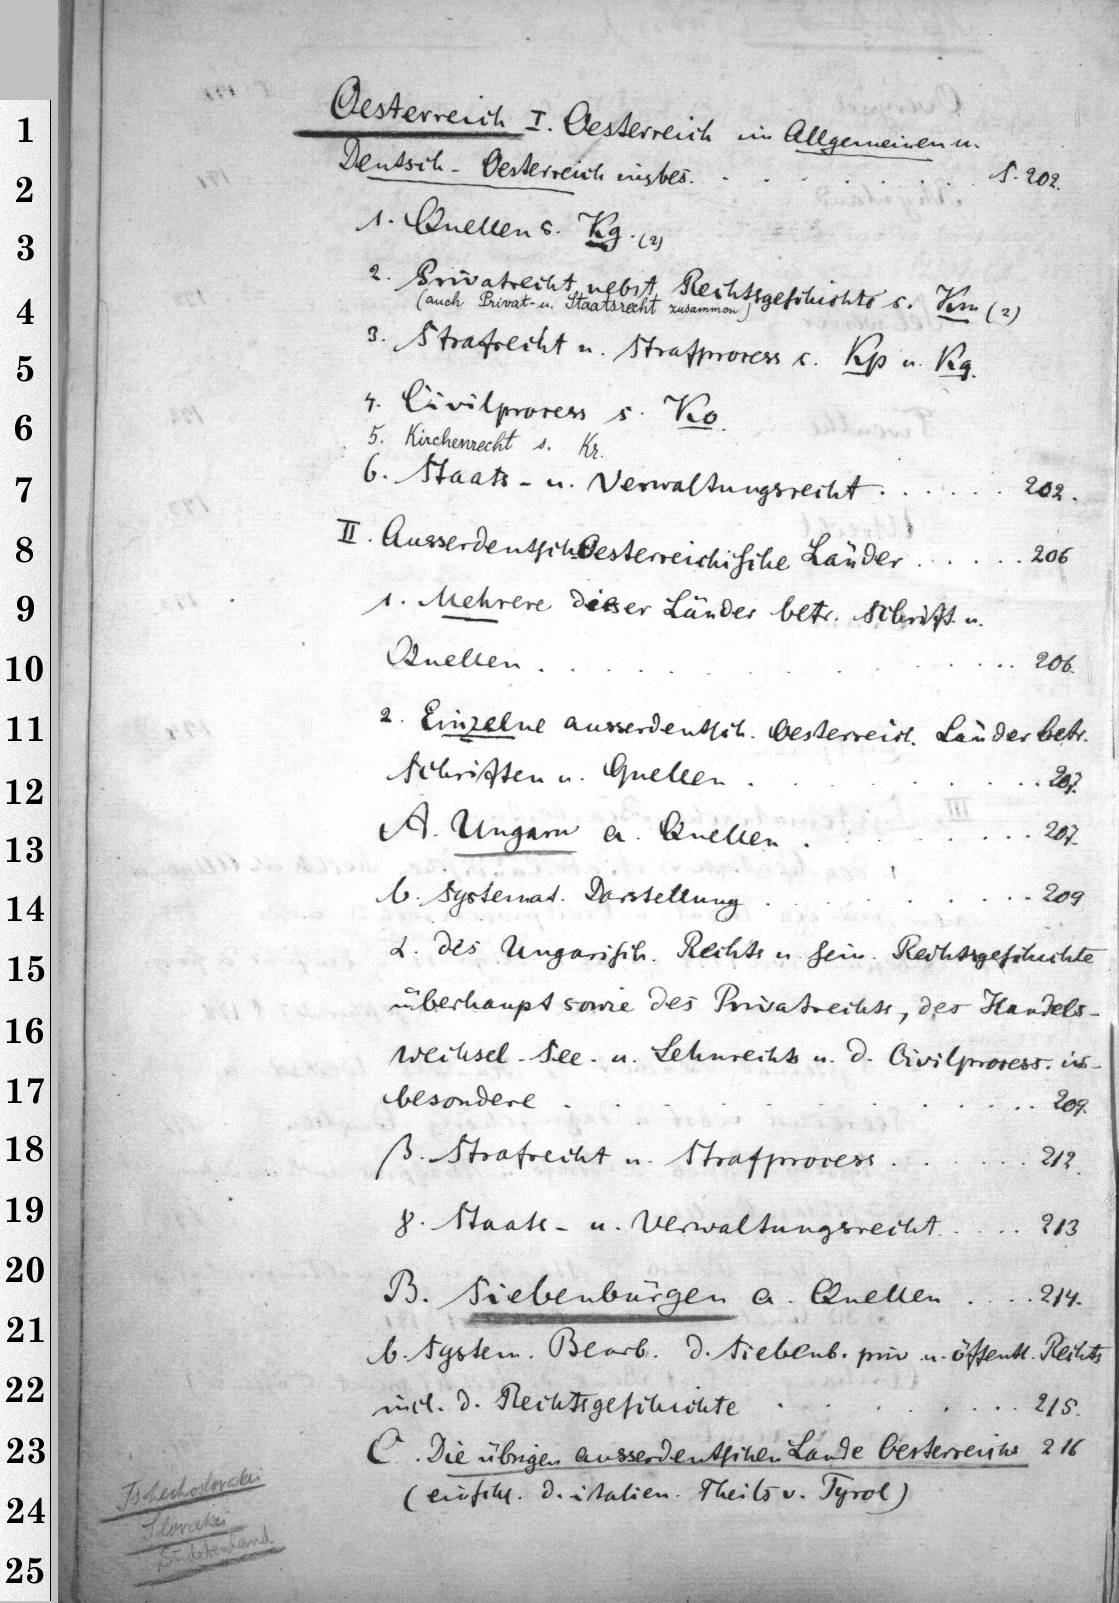 1 Oesterreich I. Oesterreich im Allgemeinen u.
2 Deutsch-Oesterreich insbes. . . . . . . S. 202.
3 1. Quellen s. Kg. (2)
4 2. Privatrecht nebst Rechtsgeschichte s. Km (2)
(auch Privat- u. Staatsrecht zusammen)
5 3. Strafrecht u. Strafprocess s. Kp u. Kq.
6 4. Civilprocess s. Ko.
5. Kirchenrecht s. Kr.
7 6. Staats- u. Verwaltungsrecht . . . . . . 202.
8 II. Ausserdeutsche Oesterreichische Länder . . . . . . 206
9 1. Mehrere dieser Länder betr. Schrift. u.
10 Quellen . . . . . . . . . 206.
11 2. Einzelne ausserdeutsch. Oesterreich. Länder betr.
12 Schriften u. Quellen . . . . . . . 207.
13 A. Ungarn a. Quellen . . . . . . . 207.
14 b. Systemat. Darstellung . . . . . . . 209
15 α. des Ungarisch. Rechts u. sein. Rechtsgeschichte
16 überhaupt sowie des Privatrechts, des Handels-
Wechsel- See- u. Lehnrechts u. d. Civilprocess. ins-
17 besondere . . . . . . . . . 209.
18 β. Strafrecht u. Strafprocess . . . . . . 212.
19 γ. Staats- u. Verwaltungsrecht . . . . 213
20 B. Siebenbürgen a. Quellen . . . . 214.
21 b. System. Bearb. d. Siebenb. priv. u. öffentl. Rechts
22 incl. d. Rechtsgeschichte . . . . . . . 215.
23 C. Die übrigen ausserdeutschen Lande Oesterreichs 216
24 (einschl. d. italien. Theils v. Tyrol)
Tschechoslovakei
Slovakei
25 Sudetenland